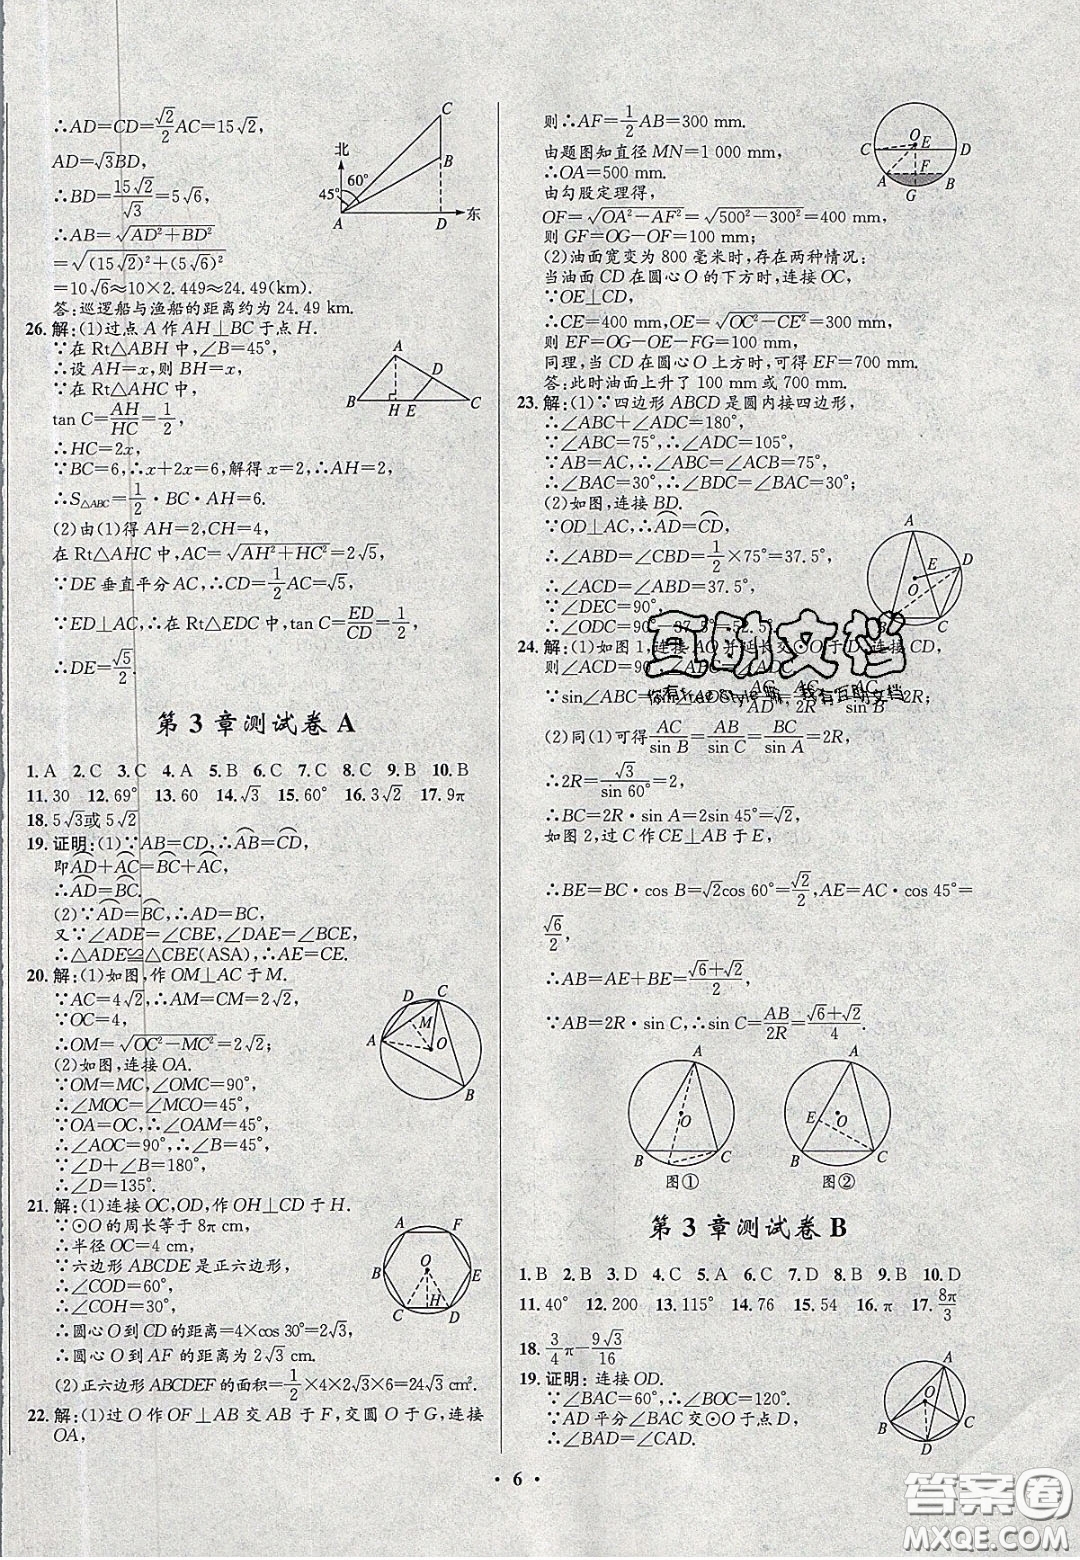 ∴AD=CD=√2/2 AC=15√2,
AD=√3BD,
∴BD=15√2/√3=5√6,
∴AB=√(AD²+BD²)
=√((15√2)²+(5√6)²)
=10√6≈10×2.449≈24.49(km).
答:巡逻船与渔船的距离约为24.49 km.
北
C
B
60°
45°
A
D
东
26.解:(1)过点A作AH⊥BC于点H.
∵在Rt△ABH中,∠B=45°,
∴设AH=x,则BH=x,
∵在Rt△AHC中,
tan C=AH/HC=1/2,
∴HC=2x,
∵BC=6,∴x+2x=6,解得x=2,∴AH=2,
∴S△ABC=1/2·BC·AH=6.
(2)由(1)得AH=2,CH=4,
在Rt△AHC中,AC=√(AH²+HC²)=2√5,
∵DE垂直平分AC,∴CD=1/2AC=√5,
∵ED⊥AC,∴在Rt△EDC中,tan C=ED/CD=1/2,
∴DE=√5/2.
A
D
B
H
E
C
第3章测试卷A
1.A 2.C 3.C 4.A 5.B 6.C 7.C 8.C 9.B 10.B
11.30 12.69° 13.60 14.√3 15.60° 16.3√2 17.9π
18.5√3或5√2
19.证明:(1)∵AB=CD,∴AB=CD,
即AD+AC=BC+AC,
∴AD=BC.
(2)∵AD=BC,∴AD=BC,
又∵∠ADE=∠CBE,∠DAE=∠BCE,
∴△ADE≌△CBE(ASA),∴AE=CE.
20.解:(1)如图,作OM⊥AC于M.
∵AC=4√2,∴AM=CM=2√2,
∵OC=4,
∴OM=√(OC²-MC²)=2√2;
(2)如图,连接OA.
∵OM=MC,∠OMC=90°,
∴∠MOC=∠MCO=45°,
∵OA=OC,∴∠OAM=45°,
∴∠AOC=90°,∴∠B=45°,
∵∠D+∠B=180°,
∴∠D=135°.
D
C
M
A
O
B
21.解:(1)连接OC,OD,作OH⊥CD于H.
∵⊙O的周长等于8π cm,
∴半径OC=4 cm,
∵六边形ABCDE是正六边形,
∴∠COD=60°,
∴∠COH=30°,
∴圆心O到CD的距离=4×cos 30°=2√3,
∴圆心O到AF的距离为2√3 cm.
(2)正六边形ABCDEF的面积=1/2×4×2√3×6=24√3 cm².
A
F
O
B
E
H
C
D
22.解:(1)过O作OF⊥AB交AB于F,交圆O于G,连接
OA,
则∴AF=1/2AB=300 mm.
由题图知直径MN=1 000 mm,
∴OA=500 mm.
由勾股定理得,
OF=√(OA²-AF²)=√(500²-300²)=400 mm,
则GF=OG-OF=100 mm;
(2)油面宽变为800毫米时,存在两种情况:
当油面CD在圆心O的下方时,连接OC,
∵OE⊥CD,
∴CE=400 mm,OE=√(OC²-CE²)=300 mm,
则EF=OG-OE-FG=100 mm,
同理,当CD在圆心O上方时,可得EF=700 mm.
答:此时油面上升了100 mm或700 mm.
O
E
C
D
F
A
B
G
23.解:(1)∵四边形ABCD是圆内接四边形,
∴∠ABC+∠ADC=180°,
∵∠ABC=75°,∴∠ADC=105°,
∵AB=AC,∴∠ABC=∠ACB=75°,
∴∠BAC=30°,∴∠BDC=∠BAC=30°;
(2)如图,连接BD.
∵OD⊥AC,∴AD=CD,
∴∠ABD=∠CBD=1/2×75°=37.5°,
∴∠ACD=∠ABD=37.5°,
∵∠DEC=90°,
∴∠ODC=90°-37.5°=52.5°
A
E
D
O
C
24.解:(1)如图1,连接AO并延长交⊙O于D,连接CD,
则∠ACD=90°,
∵sin∠ABC= AC/AD=AC/2R AC/sin B=2R;
(2)同(1)可得AC/sin B=AB/sin C=BC/sin A=2R,
∴2R=√3/sin 60°=2,
∴BC=2R·sin A=2sin 45°=√2,
如图2,过C作CE⊥AB于E,
∴BE=BC·cos B=√2cos 60°=√2/2,AE=AC·cos 45°=
√6/2,
∴AB=AE+BE=(√6+√2)/2,
∵AB=2R·sin C,∴sin C=AB/2R=(√6+√2)/4.
互助文档
你有Free Style嘛，我有互助文档
A
O
B
C
图①
A
E
O
B
C
图②
第3章测试卷B
1.B 2.B 3.D 4.C 5.A 6.C 7.D 8.B 9.B 10.D
11.40° 12.200 13.115° 14.76 15.54 16.π 17.8π/3
18.3/4π-9√3/16
19.证明:连接OD.
∵∠BAC=60°,∴∠BOC=120°.
∵AD平分∠BAC交⊙O于点D,
∴∠BAD=∠CAD.
A
O
B
C
D
·6·
答案圈
MXQE.COM